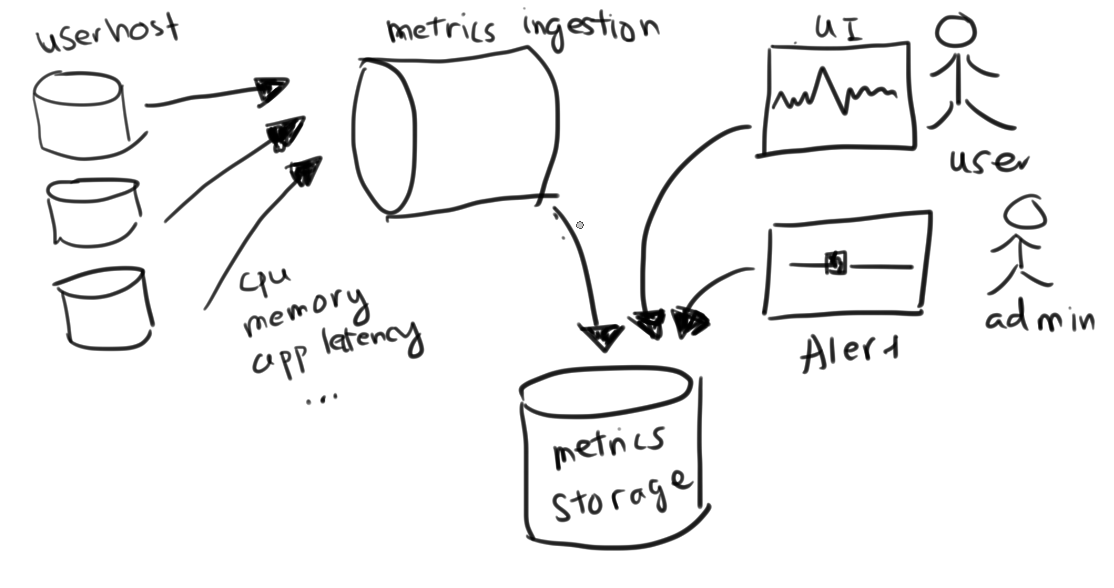 userhost
metrics ingestion
UI
user
cpu
memory
app latency
...
admin
Alert
metrics
storage